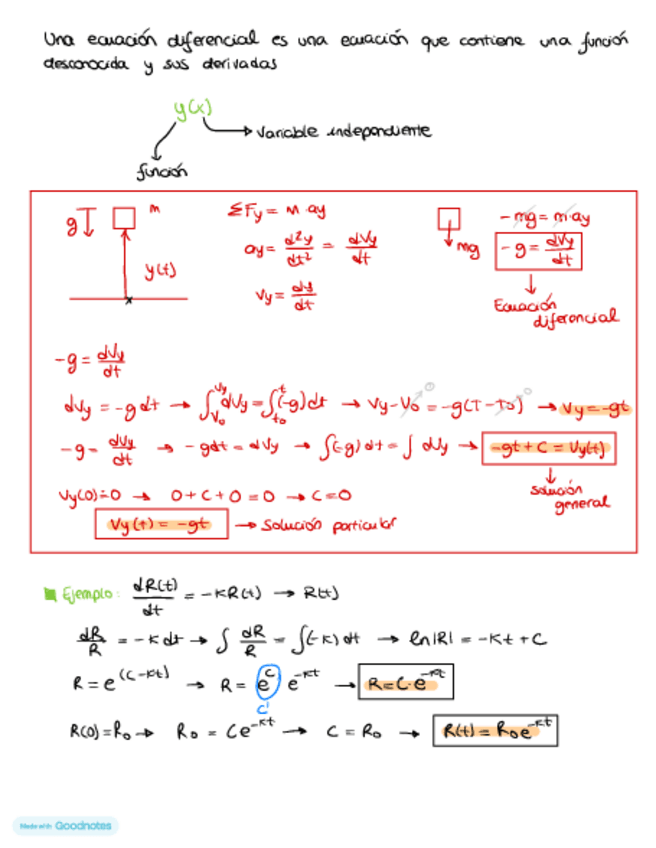 Una ecuación diferencial es una ecuación que contiene una función
desconocida y sus derivadas
y(x)
variable independiente
función
g m y(t)
ΣFy = m·ay
ay = d²y/dt² = dVy/dt
Vy = dy/dt
mg
-mg = m·ay
-g = dVy/dt
Ecuación
diferencial
-g = dVy/dt
dVy = -g dt → ∫_{V0}^{Vy} dVy = ∫_{t0}^{t} (-g) dt → Vy - V0 = -g(T - T0) → Vy = -gt
-g = dVy/dt → -gdt = dVy → ∫(-g) dt = ∫ dVy → -gt + C = Vy(t)
solución
general
Vy(0) = 0 → 0 + C + 0 = 0 → C = 0
Vy(t) = -gt → Solución particular
Ejemplo: dR(t)/dt = -KR(t) → R(t)
dR/R = -K dt → ∫ dR/R = ∫(-K) dt → ln|R| = -Kt + C
R = e^(C-Kt) → R = e^C e^-Kt → R = C·e^-Kt
C
R(0) = R0 → R0 = Ce^-Kt → C = R0 → R(t) = R0e^-Kt
Made with Goodnotes